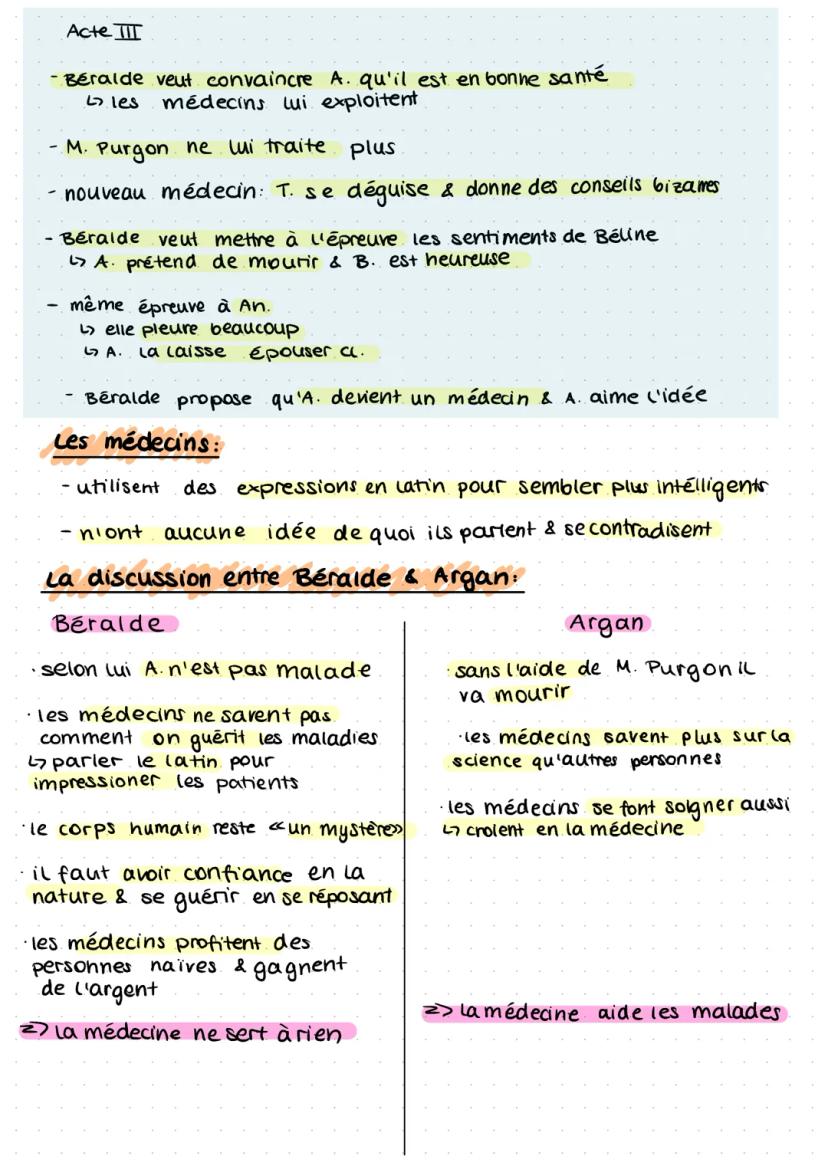 Acte III
- Béralde veut convaincre A. qu'il est en bonne santé
↳ les médecins lui exploitent
- M. Purgon ne lui traite plus
- nouveau médecin: T. se déguise & donne des conseils bizarres
- Béralde veut mettre à l'épreuve les sentiments de Béline
↳ A. prétend de mourir & B. est heureuse
- même épreuve à An.
↳ elle pleure beaucoup
↳ A. la laisse épouser Cl.
- Béralde propose qu'A. devient un médecin & A. aime l'idée
Les médecins:
- utilisent des expressions en latin pour sembler plus intélligents
- n'ont aucune idée de quoi ils parlent & se contradisent
La discussion entre Béralde & Argan:
Béralde
· selon lui A. n'est pas malade
· les médecins ne savent pas
comment on guérit les maladies
↳ parler le latin pour
impressioner les patients
· le corps humain reste «un mystère»
· il faut avoir confiance en la
nature & se guérir en se réposant
· les médecins profitent des
personnes naïves & gagnent
de l'argent
=> la médecine ne sert à rien
Argan
· sans l'aide de M. Purgon il
va mourir
· les médecins savent plus sur la
science qu'autres personnes
· les médecins se font soigner aussi
↳ croient en la médecine
=> la médecine aide les malades